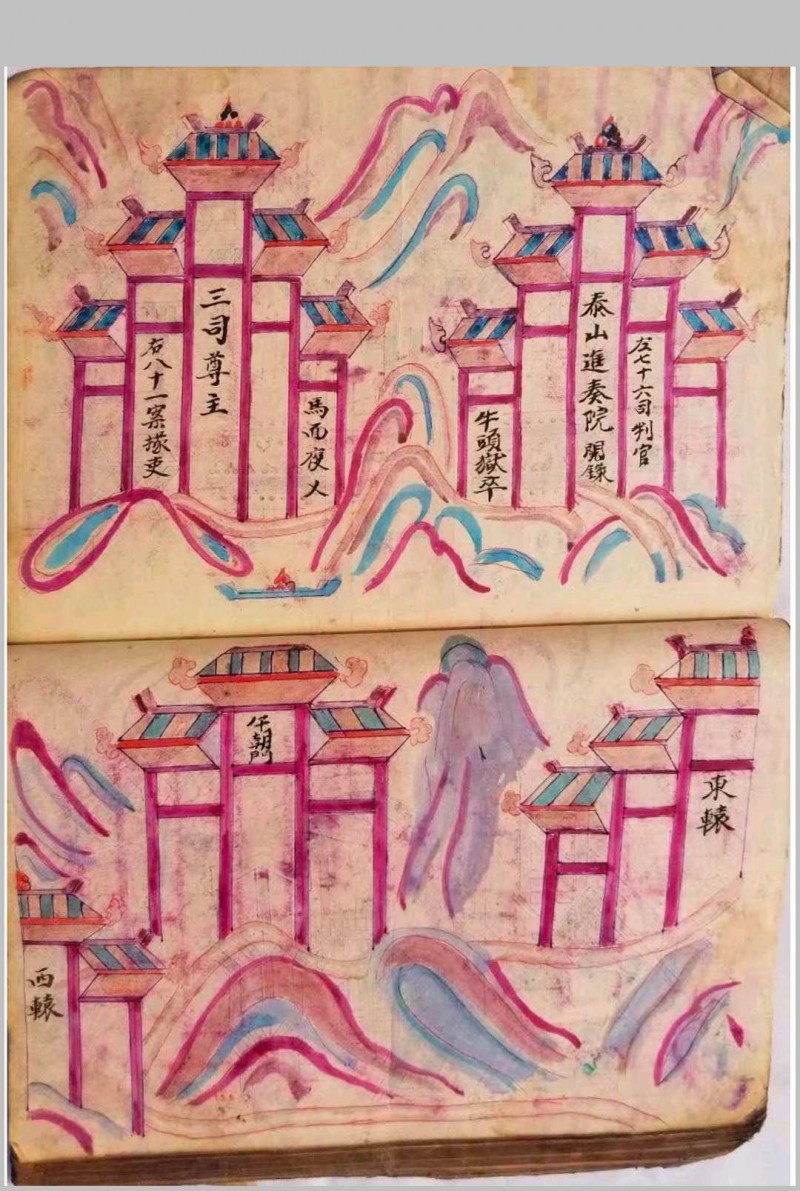 左七十六司判官
泰山進奏院開錄
牛頭獄卒
馬面夜乂
三司尊主
右八十一案掾吏
東轅
午朝門
西轅